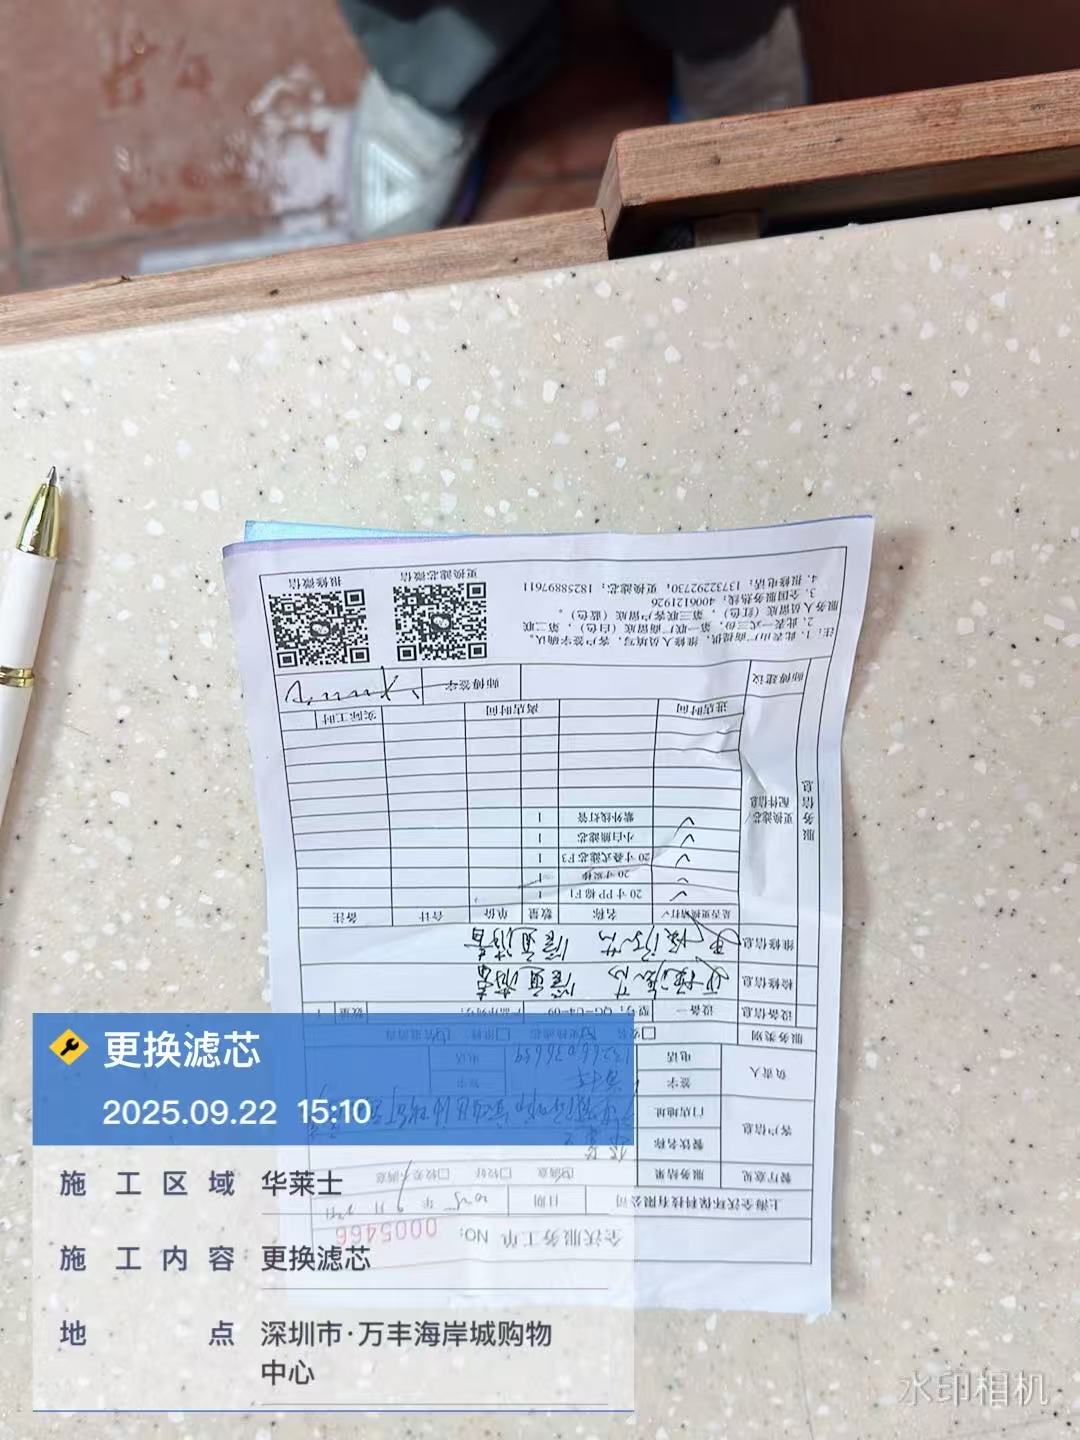 更换滤芯
2025.09.22 15:10
施工区域 华莱士
施工内容 更换滤芯
地点 深圳市·万丰海岸城购物
中心
水印相机
全沃服务工单 NO: 0005466
上海全沃环保科技有限公司 日期 2025年9月
餐厅意见 服务结果 满意 较好 较差不满意
客户信息 餐饮名称 华莱士
门店地址
负责人 签字
电话
服务类别 安装 更换滤芯 维修 管道清洗
设备信息 设备一 型号: QG-U4-09 产品序列号: 数量 1
检修信息 更换滤芯 管道清洁
维修信息 更换滤芯 管道清洁
服务信息
更换滤芯/配件信息
是否更换请打√ 名称 数量 单价 合计 备注
✓ 20寸PP棉F1 1
✓ 20寸炭棒 1
✓ 20寸叠式滤芯F3 1
✓ 小白熊滤芯 1
✓ 紫外线灯管 1
进店时间 离店时间 实际工时
师傅建议 师傅签字
注: 1、此表由厂商提供, 维修人员填写, 客户签字确认。
2、此表一式三份, 第一联厂商留底(白色), 第二联
服务人员留底(红色), 第三联客户留底(蓝色)。
3、全国服务热线: 4006121926
4、报修电话: 13732292730; 更换滤芯: 18258897611
更换滤芯微信 报修微信